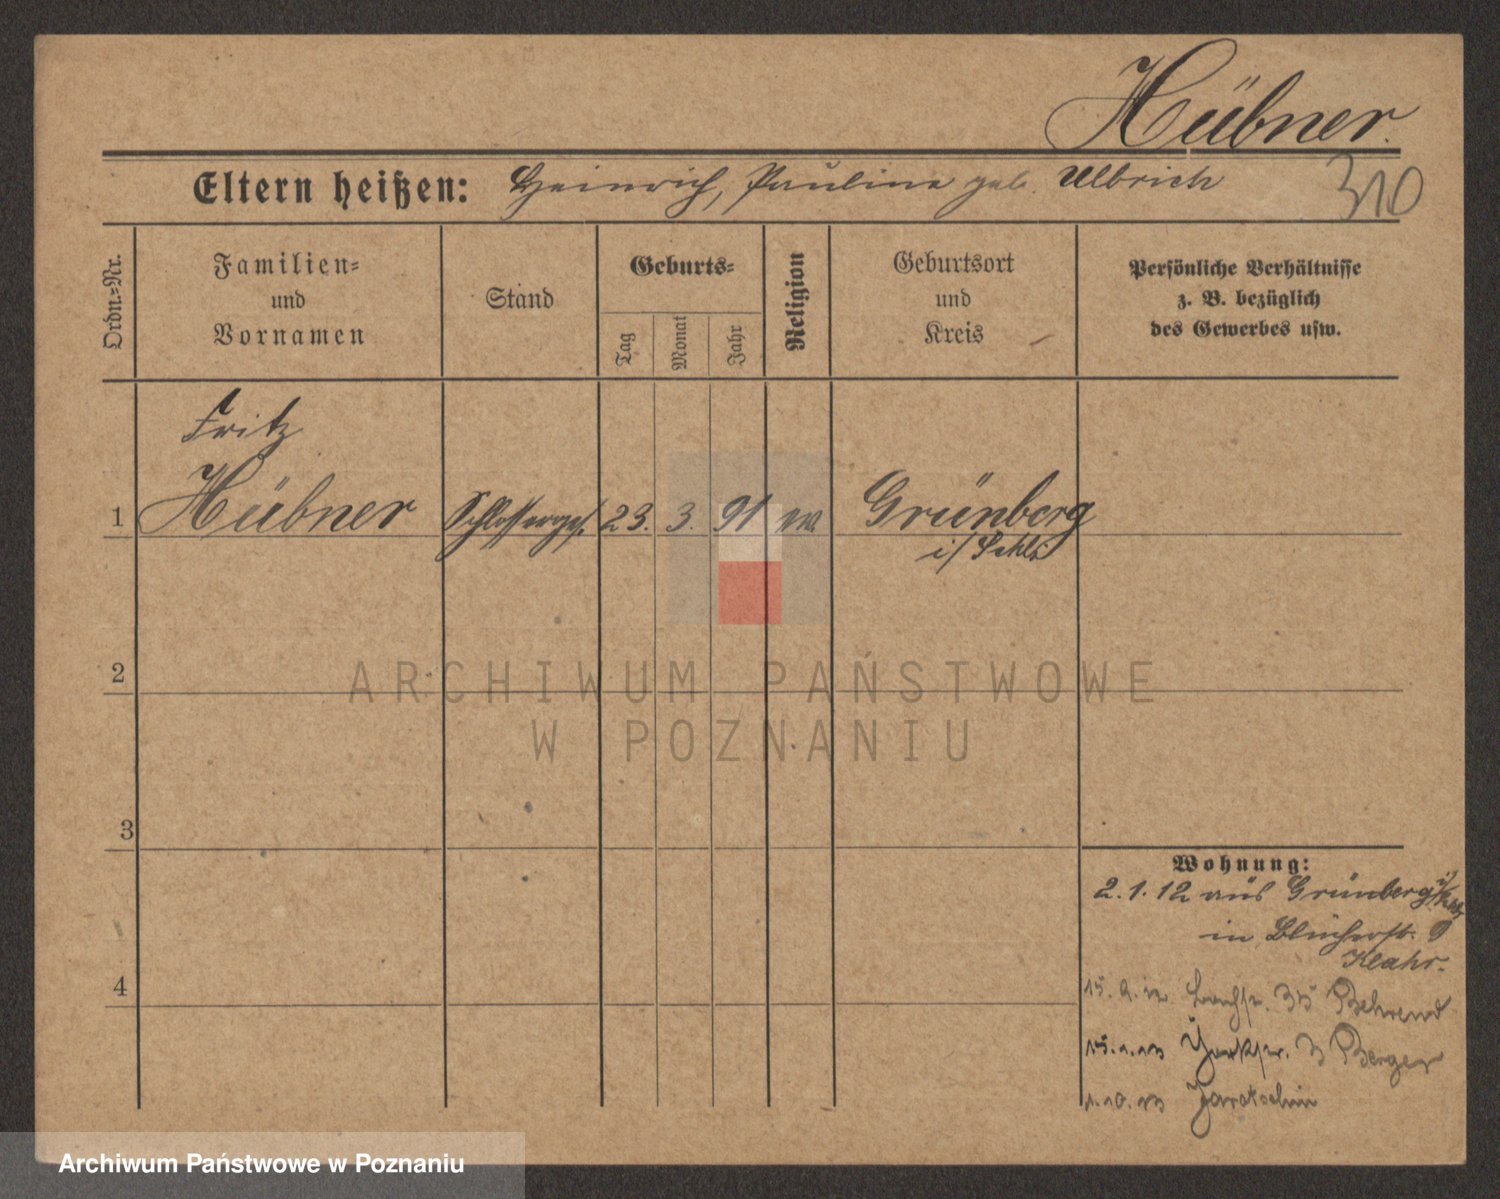 Hübner.
Eltern heißen: Heinrich, Pauline geb. Ulbrich
310
Ordn.=Nr.
Familien=
und
Vornamen
Stand
Geburts=
Tag
Monat
Jahr
Religion
Geburtsort
und
Kreis
Persönliche Verhältnisse
z. B. bezüglich
des Gewerbes usw.
Fritz
1 Hübner Schlosserges. 23. 3. 91 ev. Grünberg
i/ Schl.
2
3
4
ARCHIWUM PAŃSTWOWE
W POZNANIU
Wohnung:
2.1.12 aus Grünberg i/
in Blücherstr. 9
Klahr.
15. 9. 12 Bachstr. 35 Behrend
15.1.13 Yorkstr. 3 Berger
1.10.13 Jarotschin
Archiwum Państwowe w Poznaniu